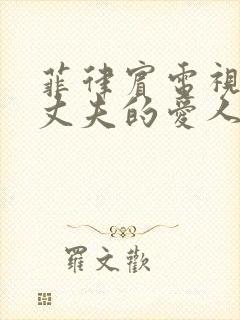 菲律賓電視
丈夫的愛人
羅文歡